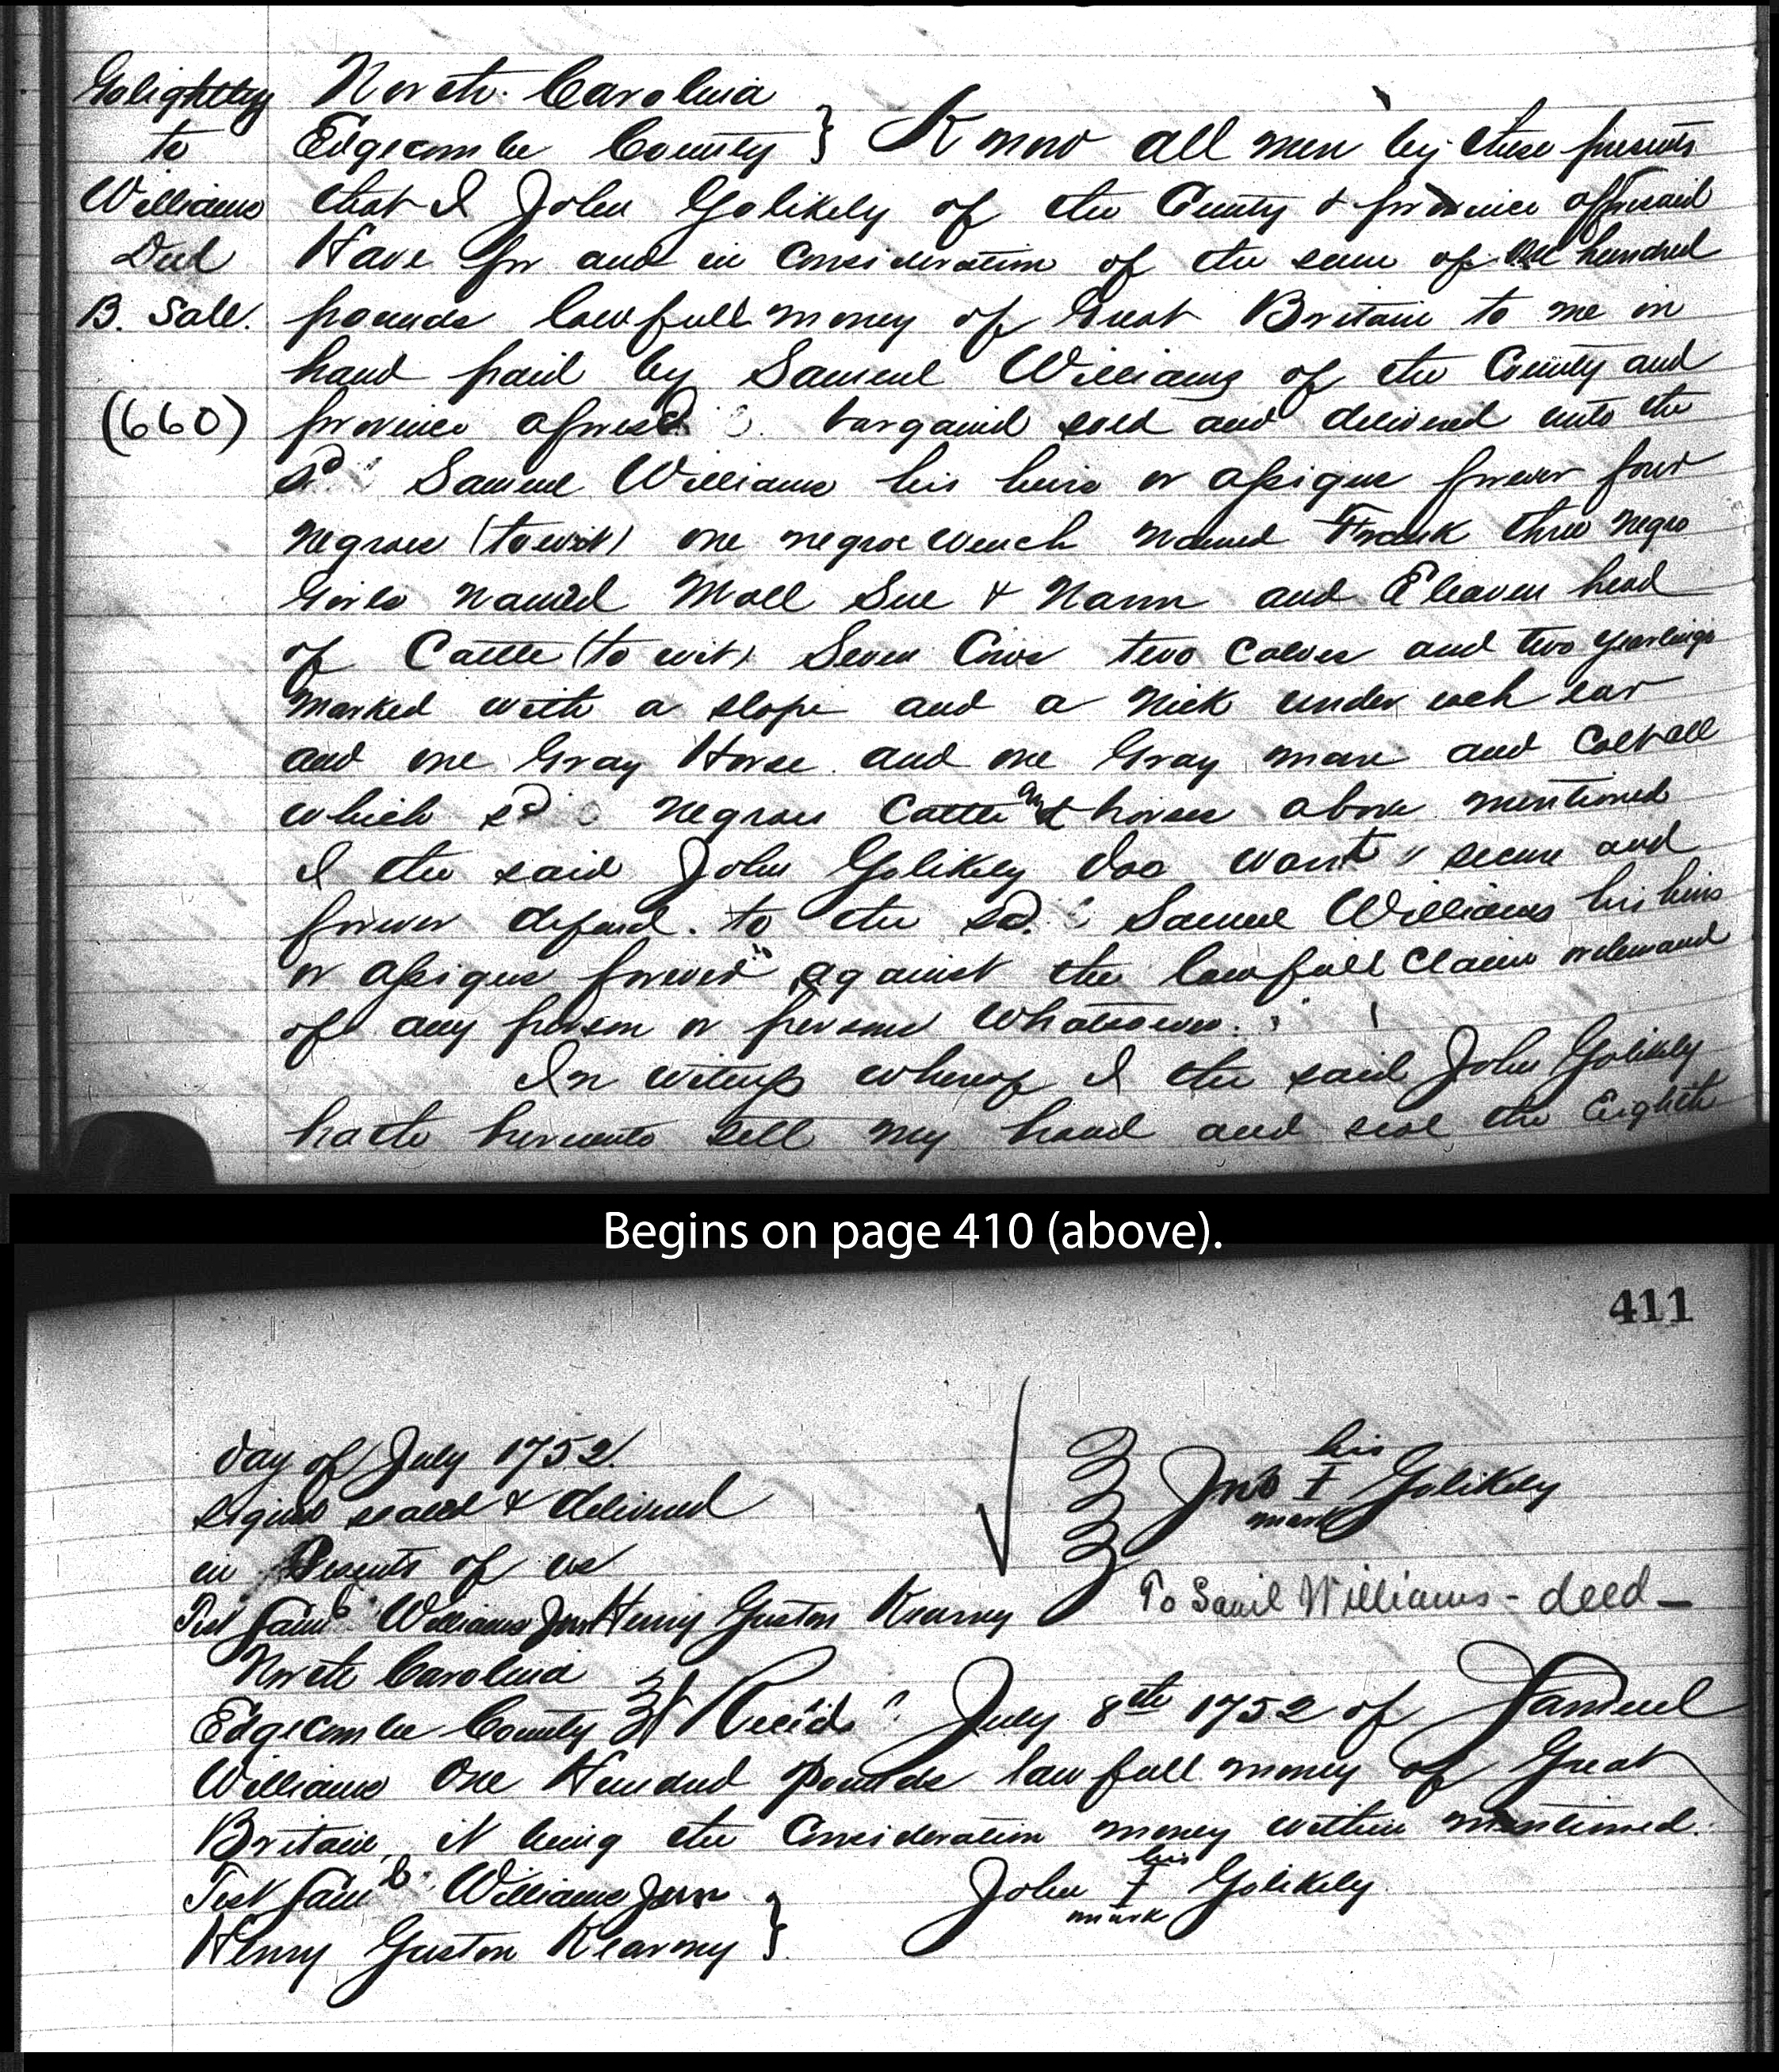 Golightly
to
Williams
Deed
B. Sale.
(660)
North Carolina
Edgecombe County } Know all men by these presents
that I John Golikely of the County & province afforesaid
Have for and in consideration of the sum of one hundred
pounds lawfull money of Great Britain to me in
hand paid by Samuel Williams of the County and
province aforesd. bargained sold and delivered unto the
sd Samuel Williams his heirs or assigns forever four
negroes (to wit) one negroe wench named Frank three negro
Girls named Moll Sue & Nann and Eleaven head
of Cattle (to wit) Seven Cows two calves and two yearlings
marked with a slope and a nick under each ear
and one Gray Horse and one Gray mare and Colt all
which sd negroes Cattle and horses above mentioned
I the said John Golikely doo warrt secure and
forever defend to the sd. Samuel Williams his heirs
or assigns forever against the lawfull claim or demand
of any person or persons whatsoever.
In witness whereof I the said John Golikely
hath hereunto sett my hand and seal the Eighth
Begins on page 410 (above).
411
day of July 1752
signed sealed & delivered
in Presents of us
Test Saml Williams Junr Henry Guston Kearney
his
Jno I Golikely
mark
To Saml Williams - deed -
North Carolina
Edgecombe County } Recd July 8th 1752 of Samuel
Williams One Hundred Pounds lawfull money of Great
Britain, it being the Consideration money within mentioned.
Test Saml Williams Junr
Henry Guston Kearney }
his
John I Golikely
mark